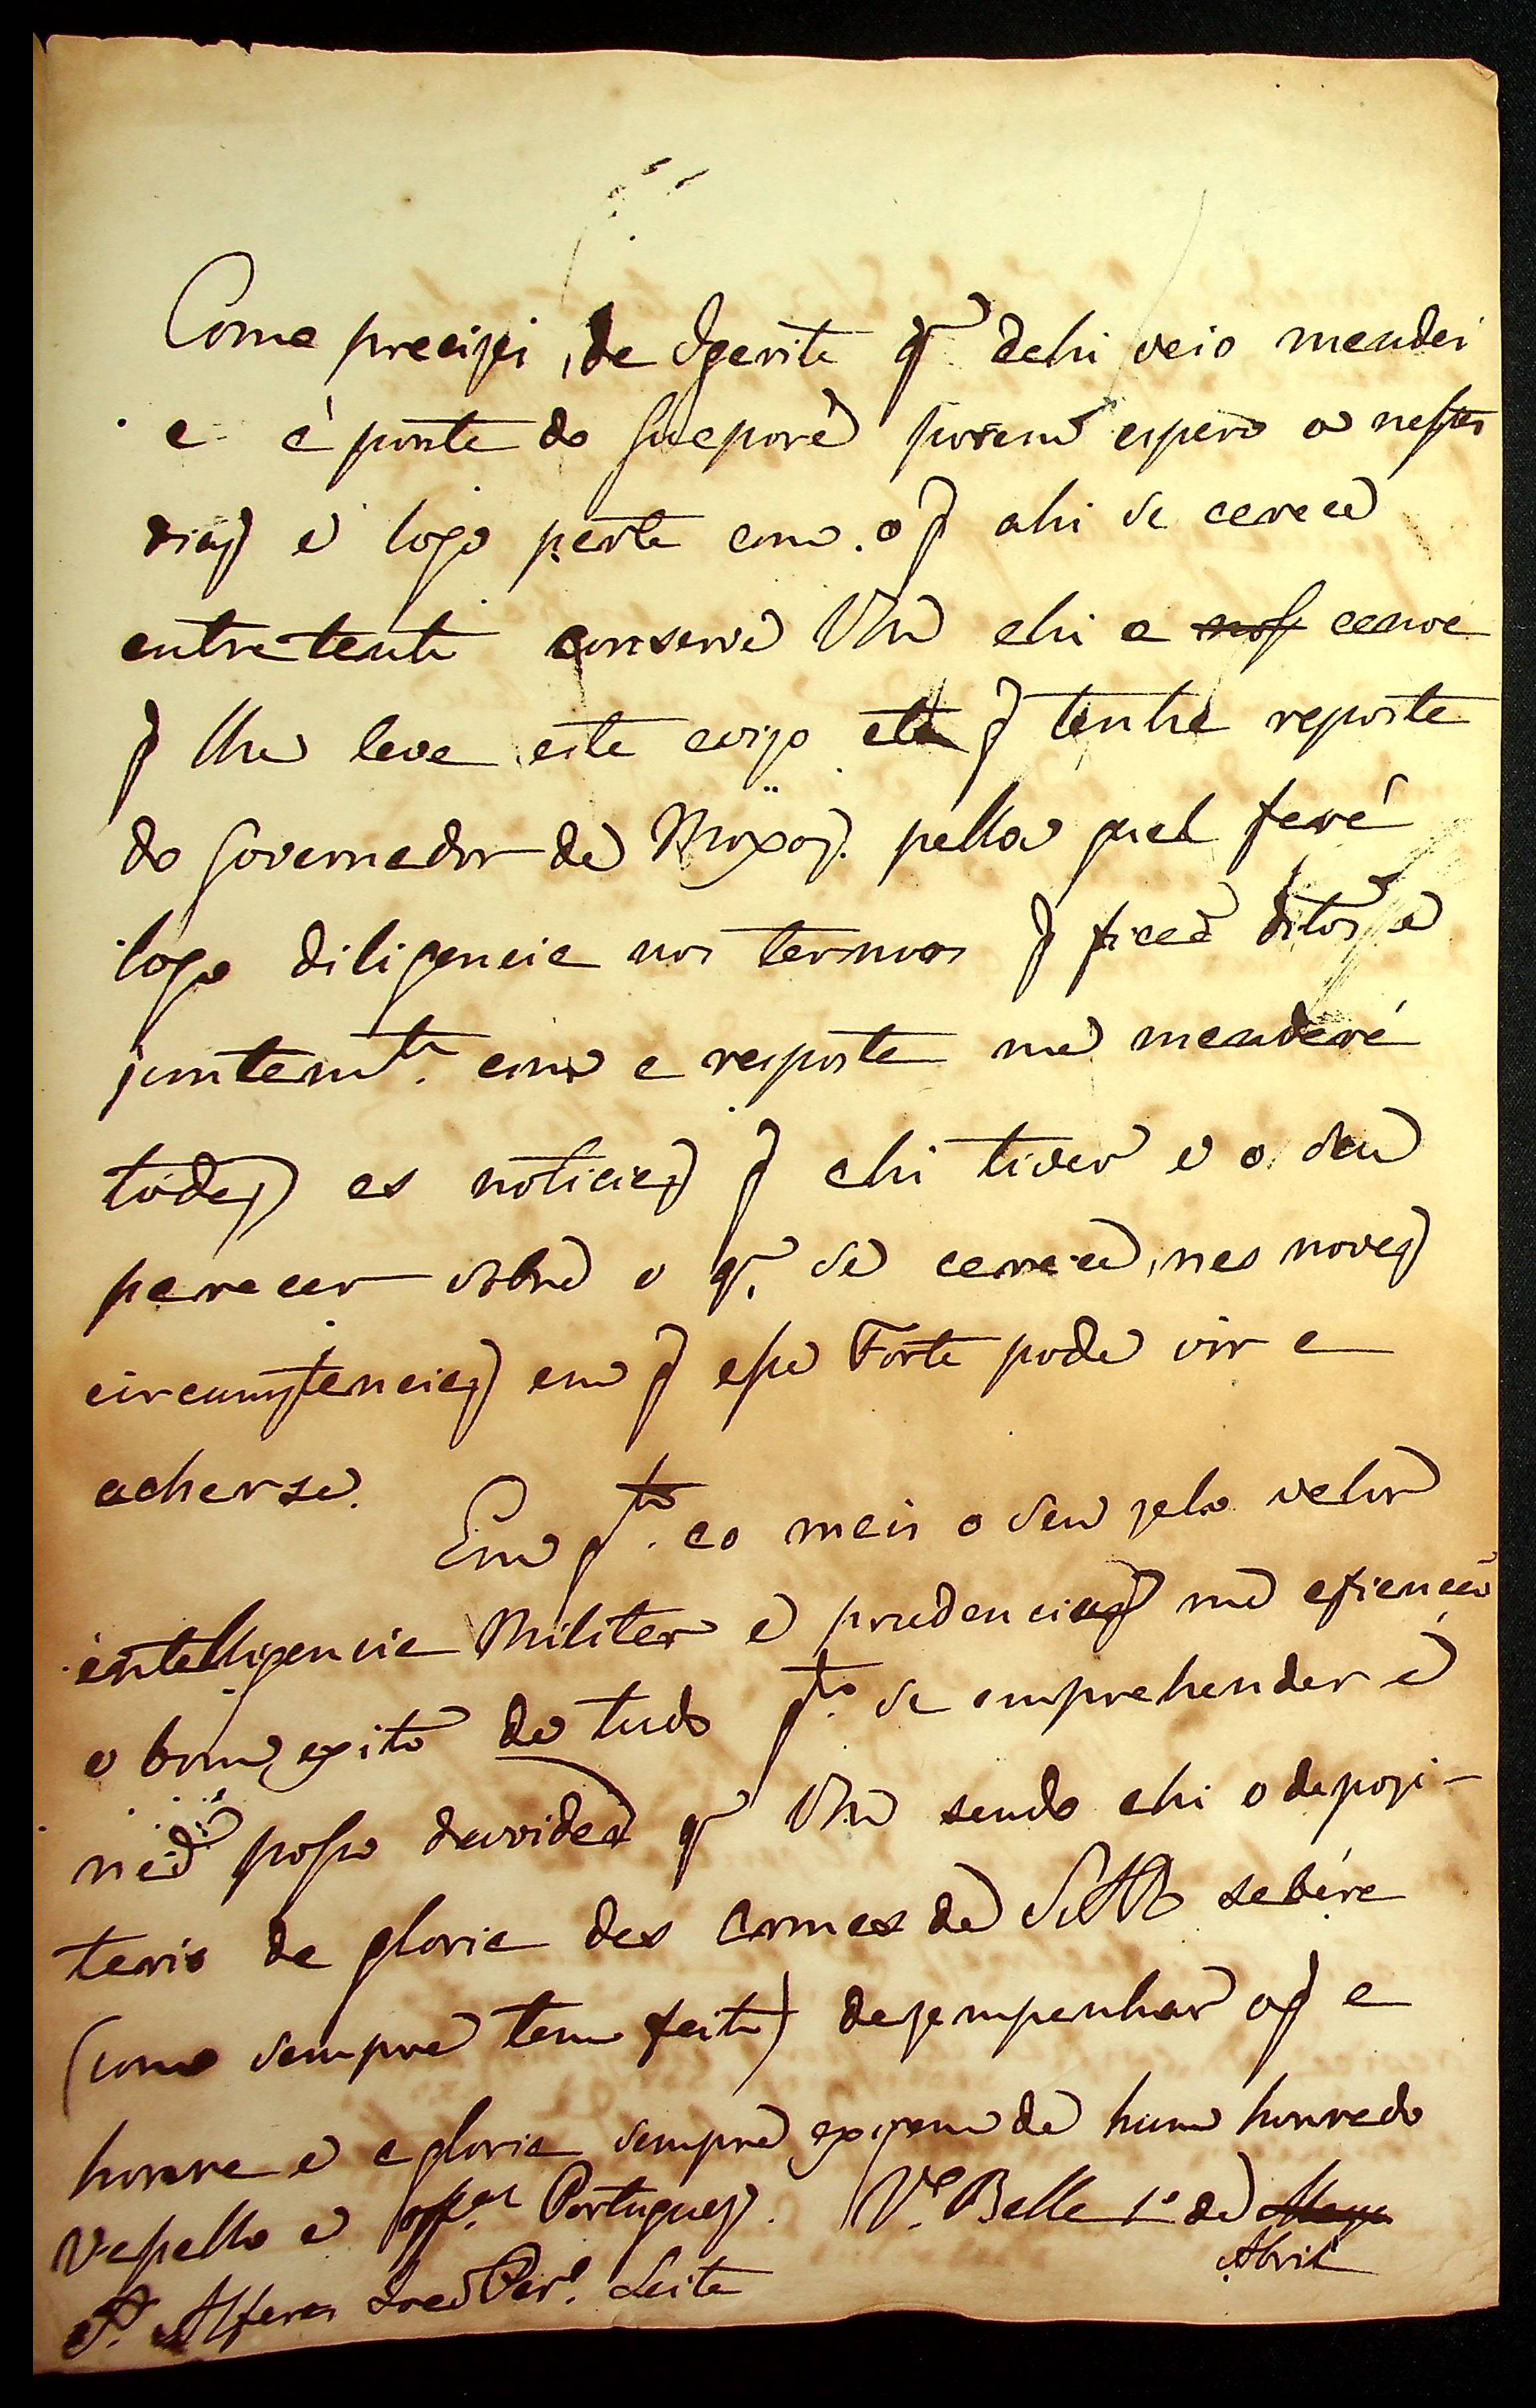 Como precizei, da Igarité q̃ dahi veio mandei
a á ponte do Guaporé porem espero a nestes
dias e logo parte com o q̃ ahi se carece
entretanto conserve Vm ahi a nos canoa
q̃ lhe leva este avizo até q̃ tenha reposta
do Governador de Moxos. pella qual fará
logo diligencia nos termos q̃ ficaõ ditos, e
juntam.te com a resposta me mandará
todas as noticias q̃ ahi tiver e o seu
parecer sobre o q̃ se carece, nas novas
circumstancias em q̃ esse Forte pode vir a
acharse.
Em q.to ao mais o seu zelo valor
intelligencia Militar e prudencia me afiançaõ
o bom exito de tudo q.to se emprehender e
naõ posso duvidar q̃ Vm sendo ahi o depozi-
tario da gloria das Armas de S. Mag. saberá
(como sempre tem feito) dezempenhar o q̃ a
honra e a gloria sempre exigem de hum honrado
Vassallo e off.al Portuguez. V.a Bella 1º de Mayo
Abril
S.r Alferes Joaõ Per.a Leite